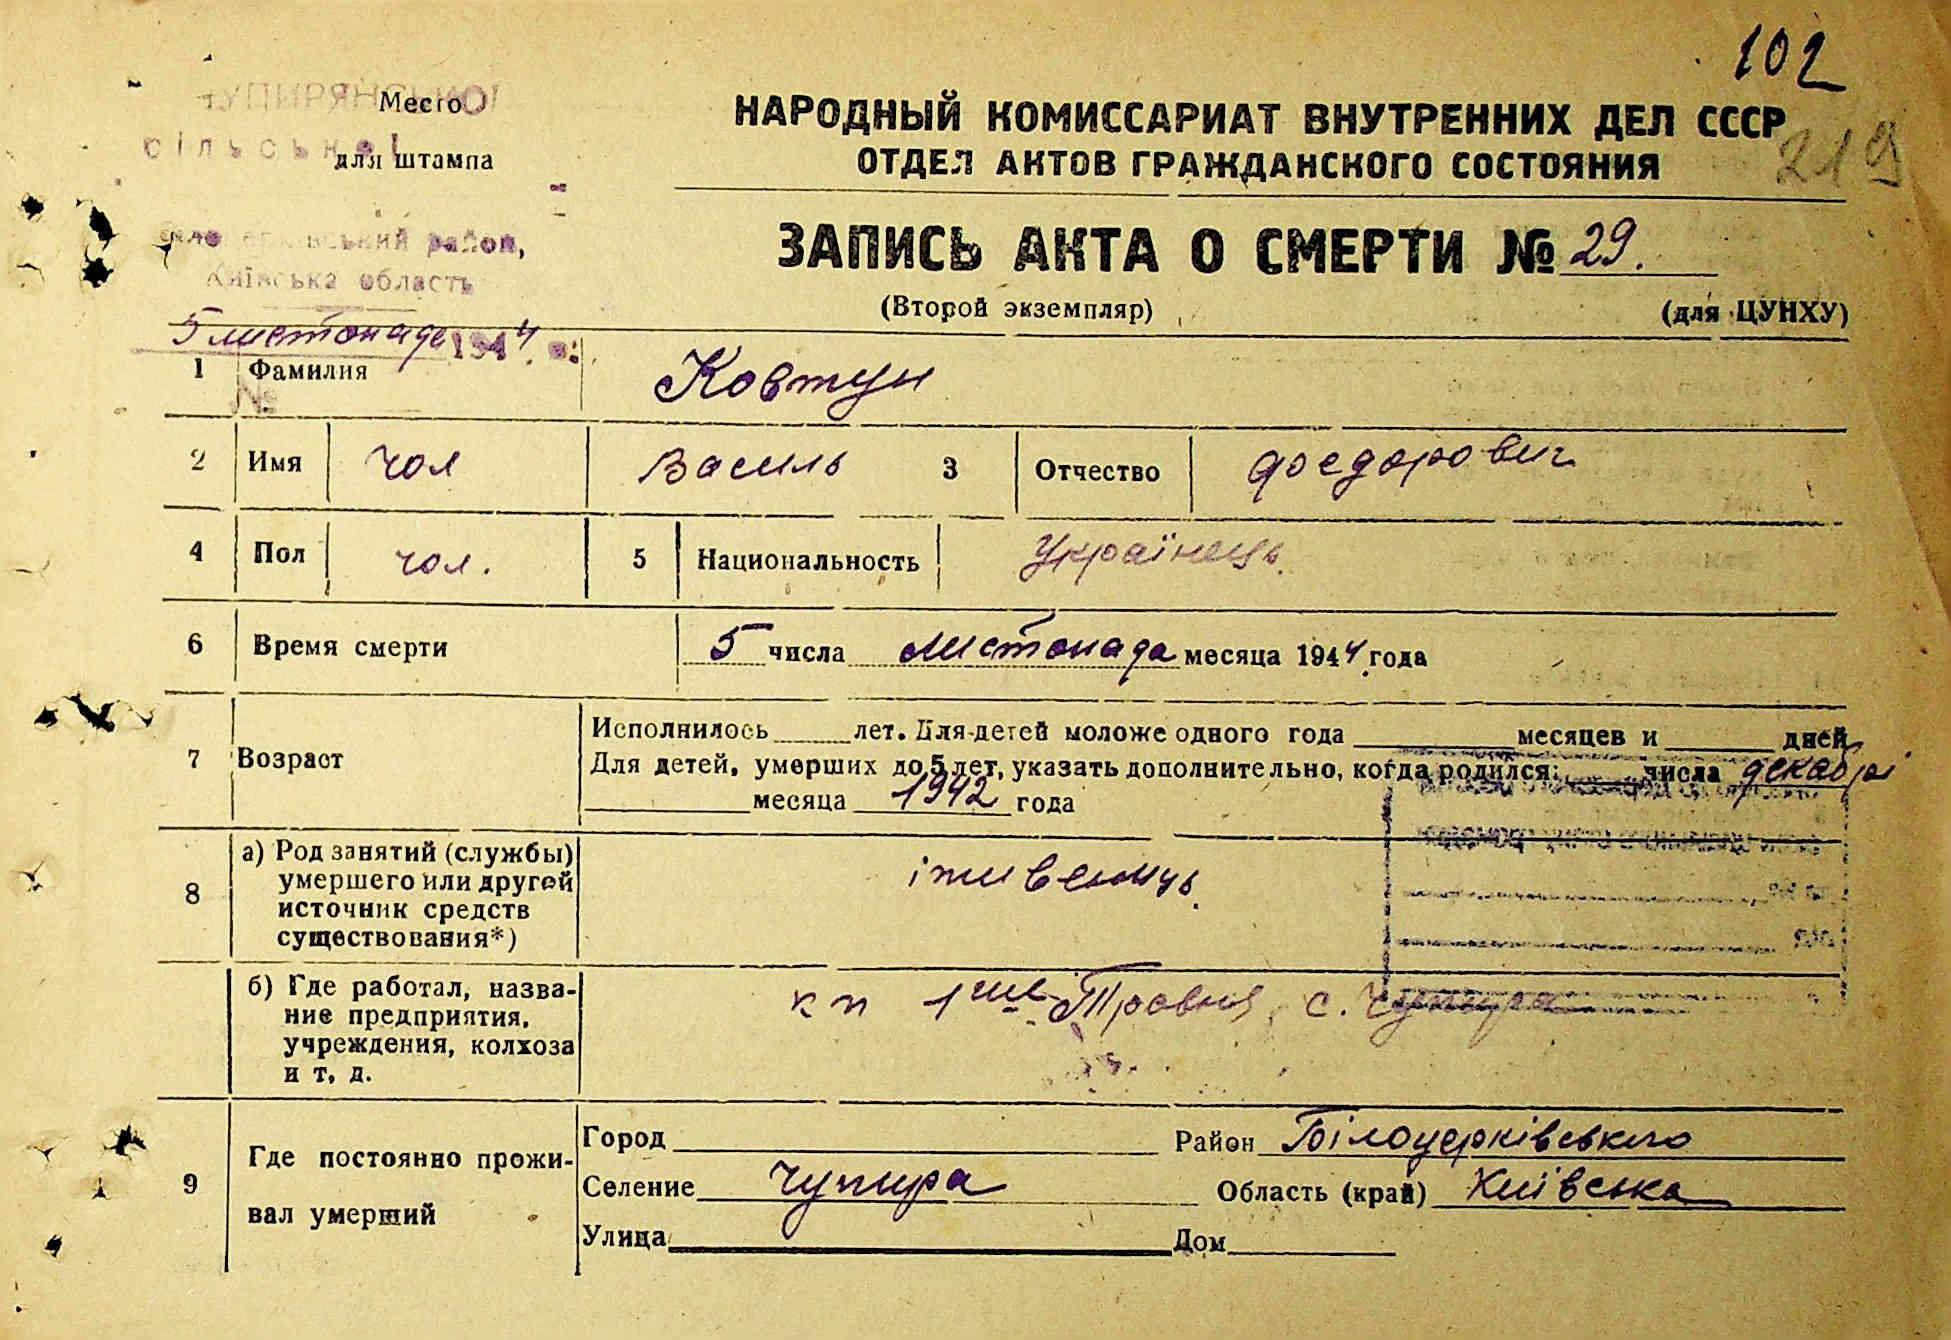 102
НАРОДНЫЙ КОМИССАРИАТ ВНУТРЕННИХ ДЕЛ СССР
ОТДЕЛ АКТОВ ГРАЖДАНСКОГО СОСТОЯНИЯ
219
Место
для штампа
сільської
район,
Київська область
5 листопада 1944
ЗАПИСЬ АКТА О СМЕРТИ № 29.
(Второй экземпляр)
(для ЦУНХУ)
1 Фамилия Ковтун
№
2 Имя чол Василь 3 Отчество Федорович
4 Пол чол. 5 Национальность Українець.
6 Время смерти 5 числа листопада месяца 1944 года
7 Возраст
Исполнилось лет. Для детей моложе одного года месяцев и дней
Для детей, умерших до 5 лет, указать дополнительно, когда родился: числа декабрі
месяца 1942 года
8 а) Род занятий (службы)
умершего или другой
источник средств
существования*)
б) Где работал, назва-
ние предприятия,
учреждения, колхоза
и т. д.
кп 1ше Травня с. Чупира
9 Где постоянно прожи-
вал умерший
Город Район Білоцерківського
Селение Чупира Область (край) Київська
Улица Дом